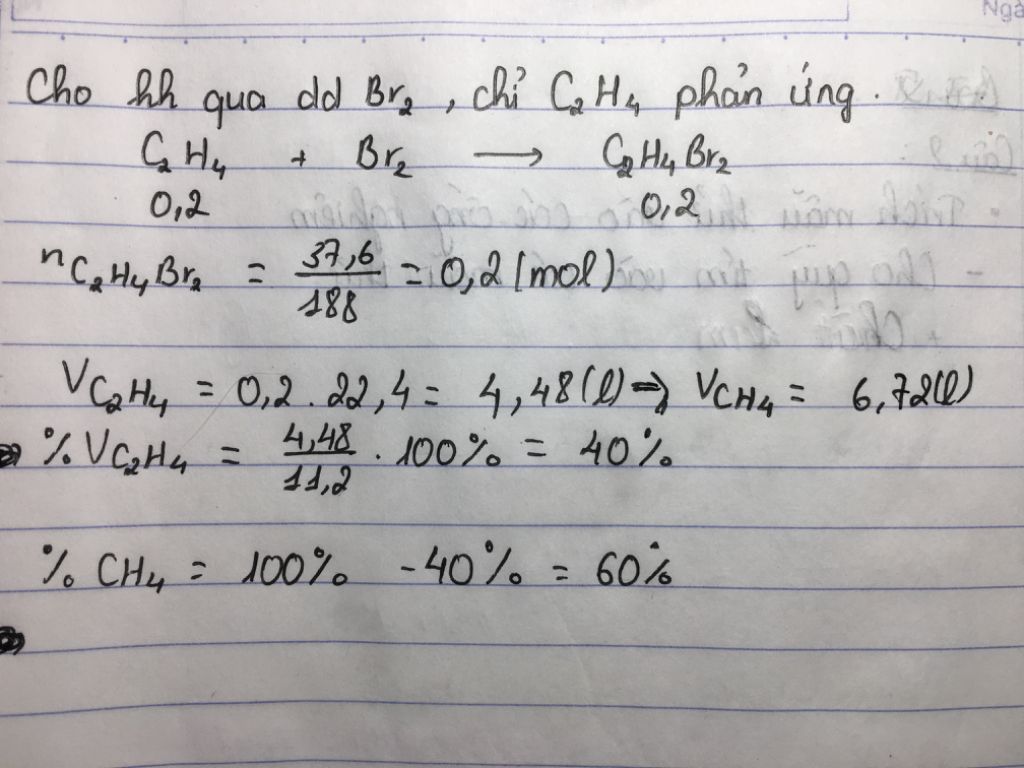 Ngà
Cho hh qua dd Br₂, chỉ C₂H₄ phản ứng.
C₂H₄ + Br₂ → C₂H₄Br₂
0,2 0,2
nC₂H₄Br₂ = 37,6/188 = 0,2 (mol)
VC₂H₄ = 0,2 . 22,4 = 4,48(l) => VCH₄ = 6,72(l)
% VC₂H₄ = 4,48/11,2 . 100% = 40%
% CH₄ = 100% - 40% = 60%